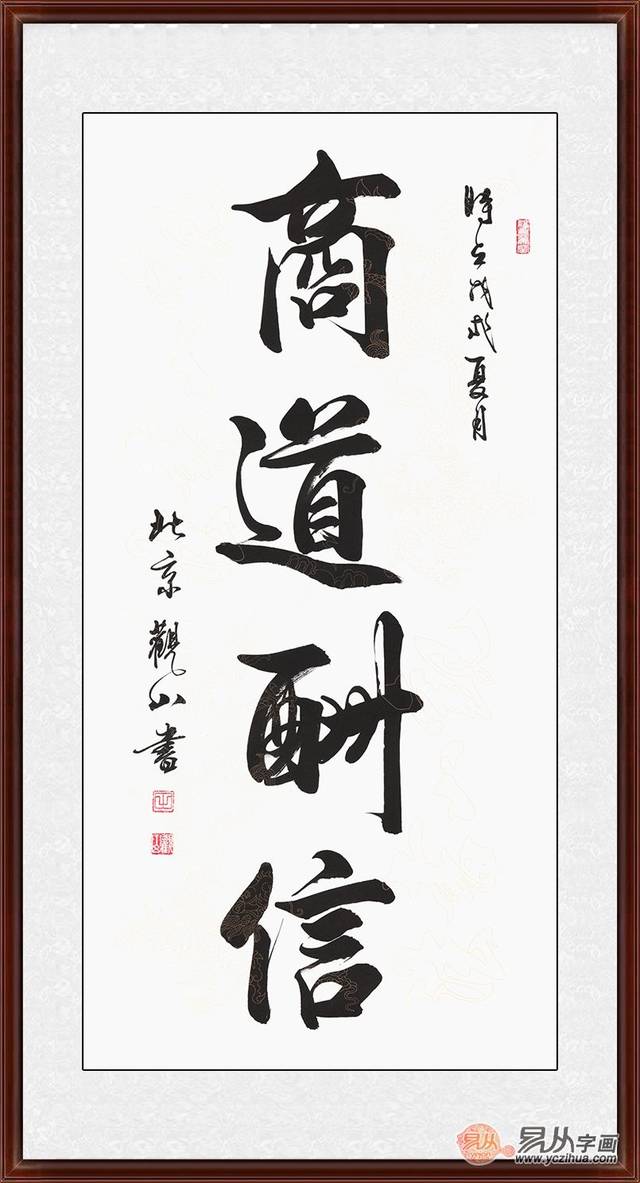 時在戊戌夏月
商道酬信
北京觀山書
易从字画
www.yczihua.com